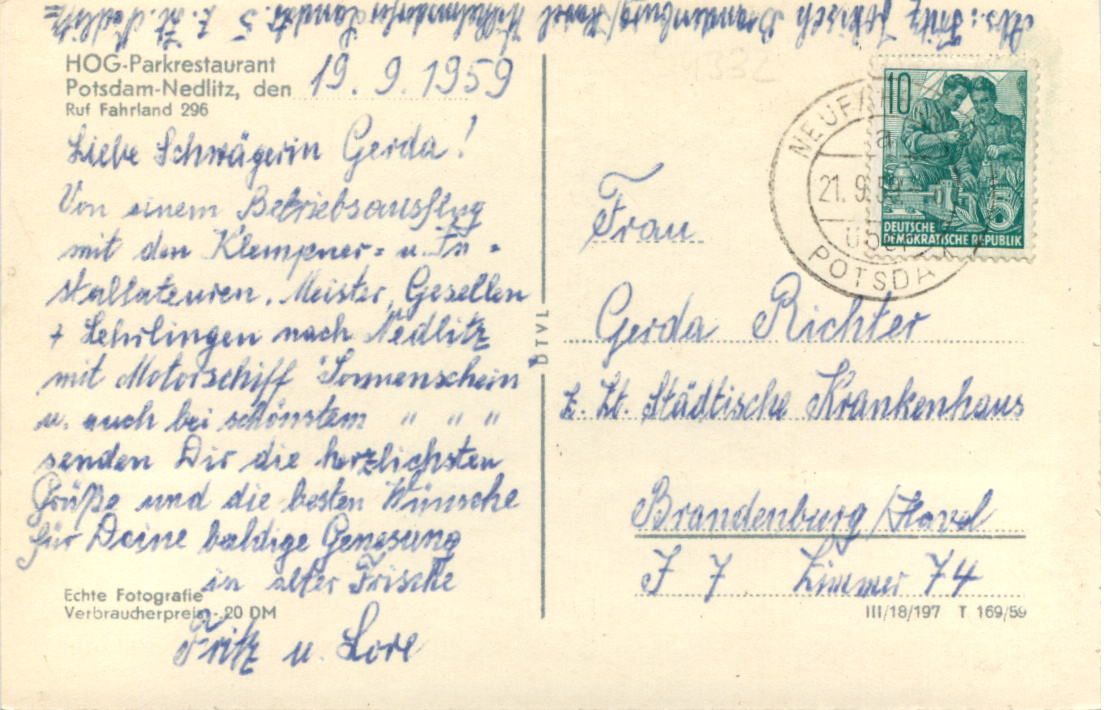 Abs.: Fritz Jokisch Brandenburg/Havel Wilhelmsdorfer Landstr. 5 z. Zt. Nedlitz
HOG-Parkrestaurant
Potsdam-Nedlitz, den 19. 9. 1959
Ruf Fahrland 296
Liebe Schwägerin Gerda!
Von einem Betriebsausflug
mit den Klempner- u. In-
stallateuren, Meister, Gesellen
+ Lehrlingen nach Nedlitz
mit Motorschiff "Sonnenschein"
u. auch bei schönstem " " "
senden Dir die herzlichsten
Grüße und die besten Wünsche
für Deine baldige Genesung
in alter Frische
Fritz u. Lore
Echte Fotografie
Verbraucherpreis -,20 DM
DTVL
4332
10
DEUTSCHE
DEMOKRATISCHE REPUBLIK
5
NEUF
a
21. 9. 59
über
POTSDAM
Frau
Gerda Richter
z. Zt. Städtische Krankenhaus
Brandenburg/Havel
J 7 Zimmer 74
III/18/197 T 169/59